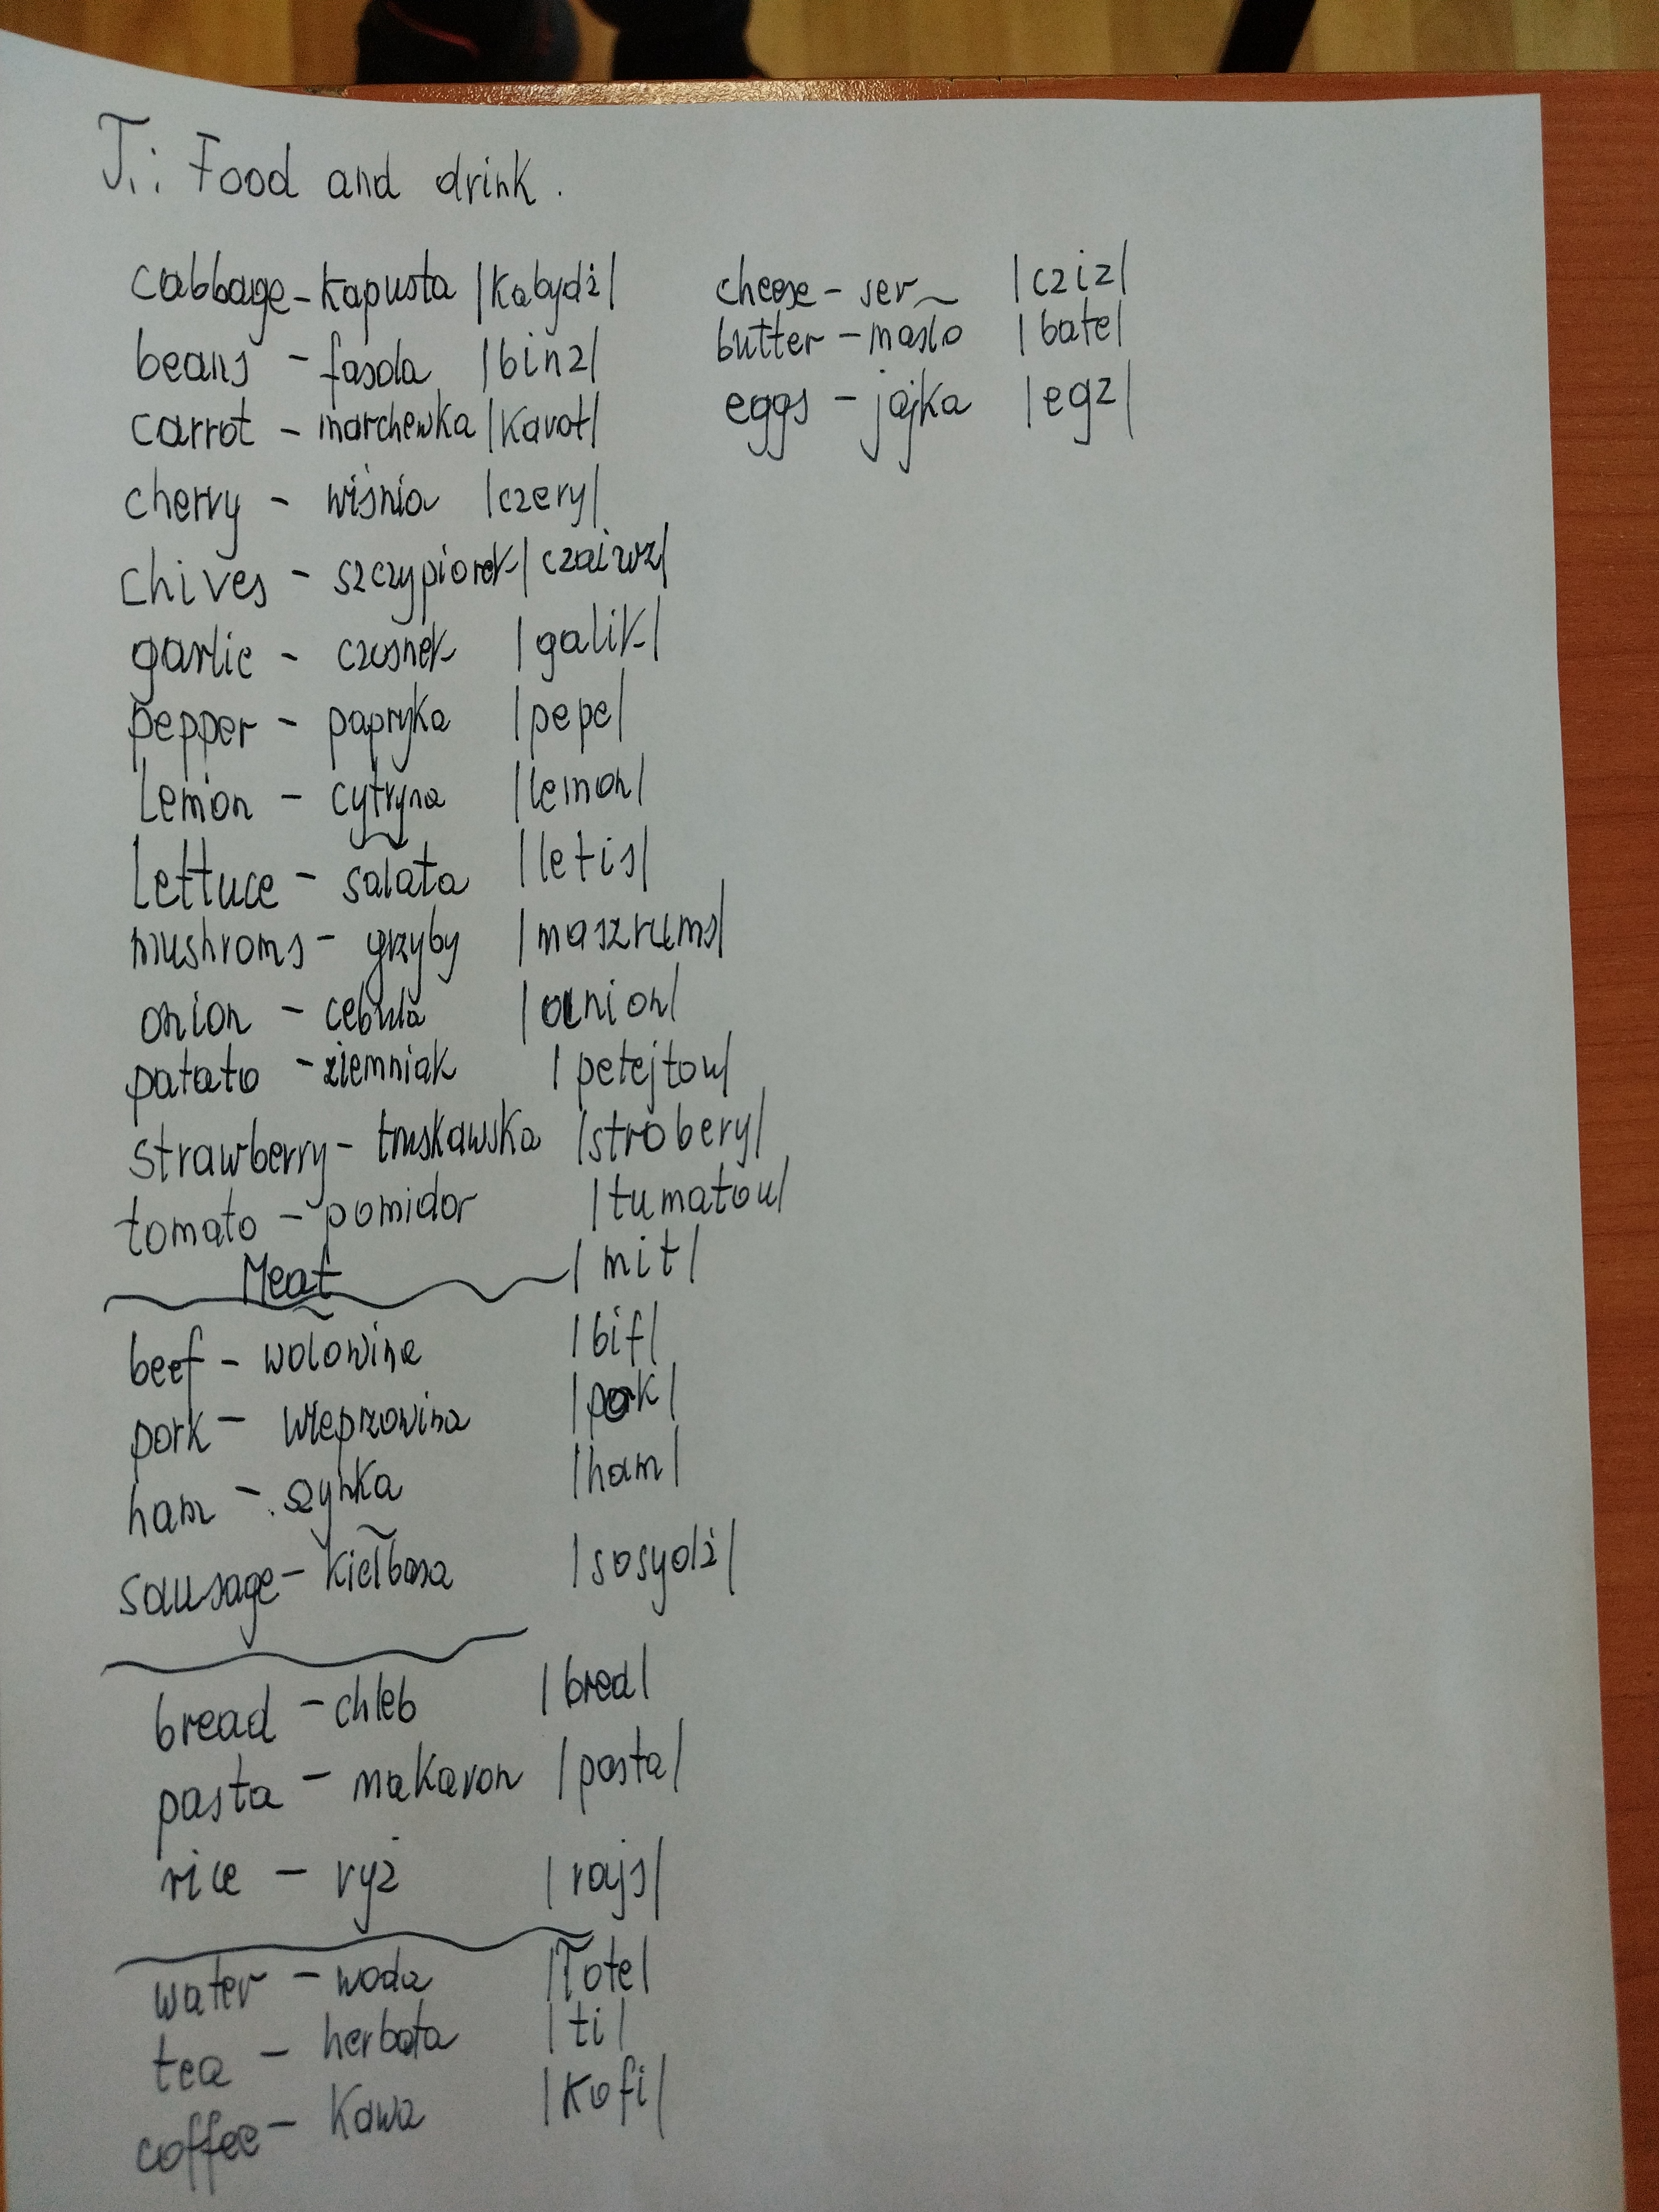 T.: Food and drink.
cabbage - kapusta |kabydż|
beans - fasola |binz|
carrot - marchewka |karot|
cherry - wiśnia |czery|
chives - szczypiorek |czaiwz|
garlic - czosnek |galik|
pepper - papryka |pepe|
Lemon - cytryna |lemon|
Lettuce - sałata |letis|
mushroms - grzyby |maszrums|
onion - cebula |onion|
patato - ziemniak |petejtou|
strawberry - truskawska |strobery|
tomato - pomidor |tumatou|
Meat |mit|
beef - wołowina |bif|
pork - wieprzowina |pork|
ham - szynka |ham|
sausage - kiełbasa |sosydż|
bread - chleb |bred|
pasta - makaron |pasta|
rice - ryż |rajs|
water - woda |łote|
tea - herbata |ti|
coffee - kawa |kofi|
cheese - ser |cziz|
butter - masło |bate|
eggs - jajka |egz|